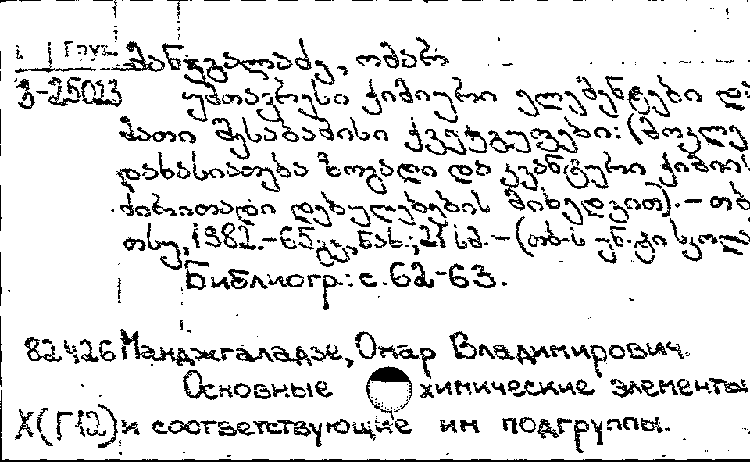 Груз.
მანჯგალაძე, ომარ
3-25013
უმთავრესი ქიმიური ელემენტები და
მათი შესაბამისი ქვეჯგუფები: (მოკლე
დახასიათება ზოგადი და კვანტური ქიმიის
ძირითადი დებულებების მიხედვით).- თბ
თსუ, 1982.-65გვ., ნახ.; 21 სმ.-(თბ-ს უნ.-კი სკოლა
Библиогр.: с. 62-63.
82426 Манджгаладзе, Омар Владимирович.
Основные химические элементы
X(Г12) и соответствующие им подгруппы.